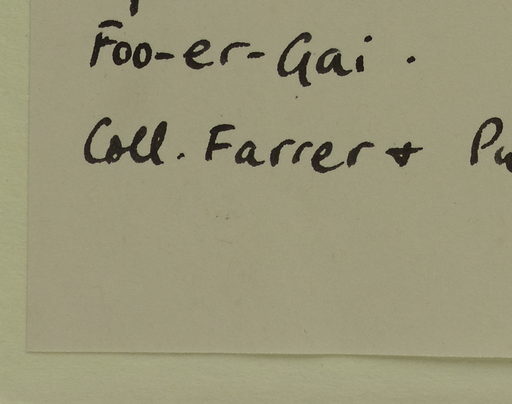 Foo-er-Gai.
Coll. Farrer +